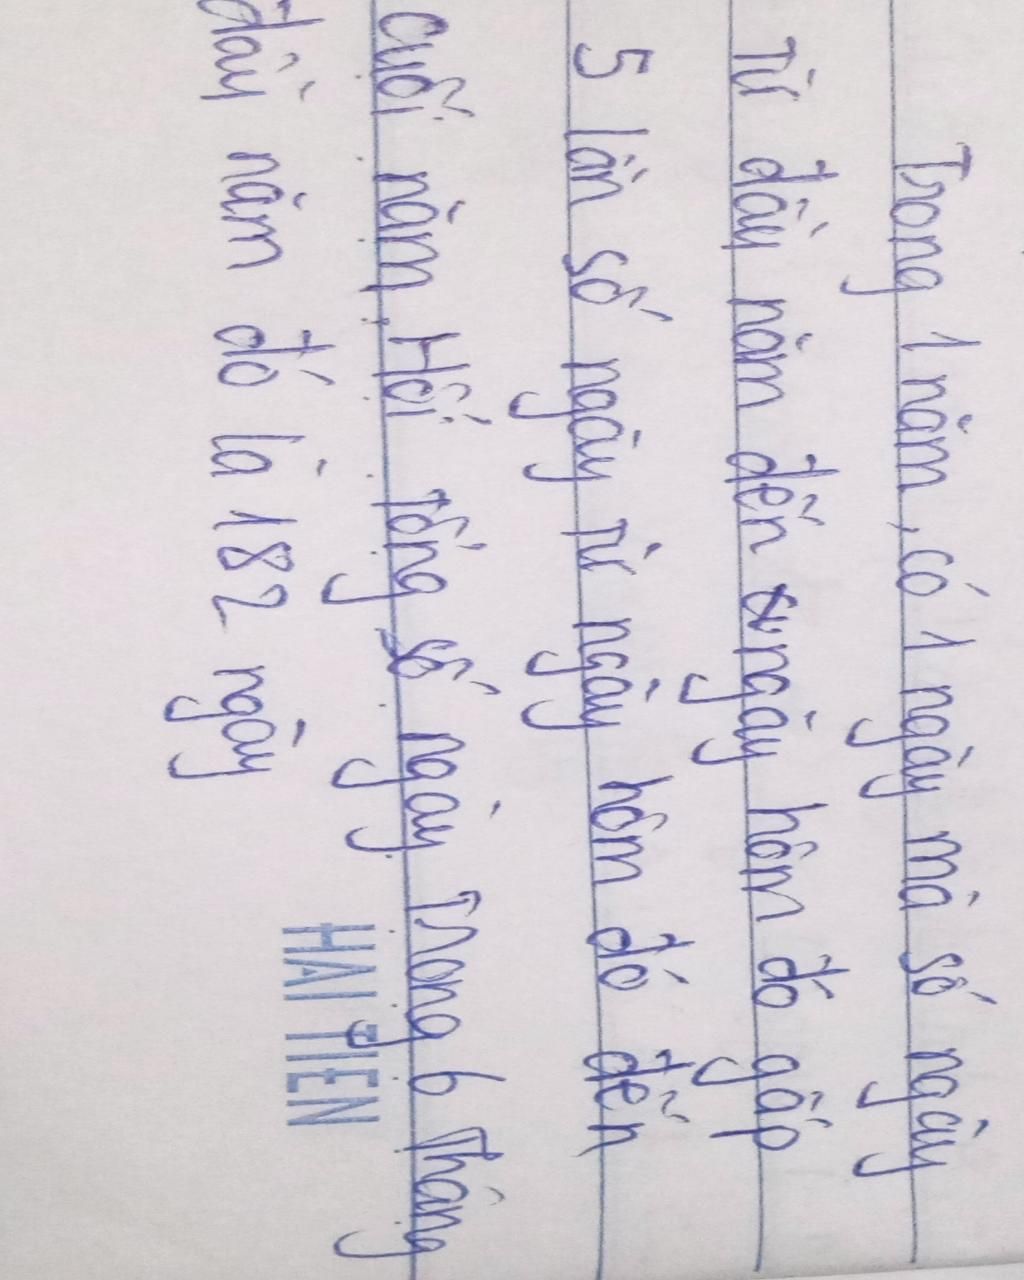 Trong 1 năm, có 1 ngày mà số ngày
Từ đầu năm đến ngày hôm đó gấp
5 lần số ngày từ ngày hôm đó đến
cuối năm, Hỏi tổng số ngày Trong 6 Tháng
đầu năm đó là 182 ngày
HẢI TIẾN